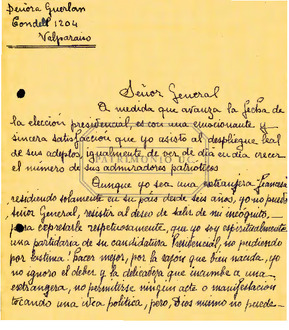 Señora Guerlan
Condell 1204
Valparaiso
Señor General
A medida que avanza la fecha de
la elección presidencial, es con una emocionante y
sincera satisfacción que yo asisto al despliegue leal
de sus adeptos, igualmente de ver de día en día crecer
el número de sus admiradores patrióticos
PATRIMONIO UC
Aunque yo sea una extranjera francesa
residiendo solamente en su país desde seis años, yo no puedo
señor General, resistir al deseo de salir de mi incógnito,
para expresarle respetuosamente, que yo soy espiritualmente
una partidaria de su candidatura Presidencial, no pudiendo
por lástima! hacer mejor, por la razón que bien nacida, yo
no ignoro el deber y la delicadeja que incumbe a una
extranjera, no permitirse ningún acto o manifestación
tocando una idea política, pero, Dios mismo no puede-